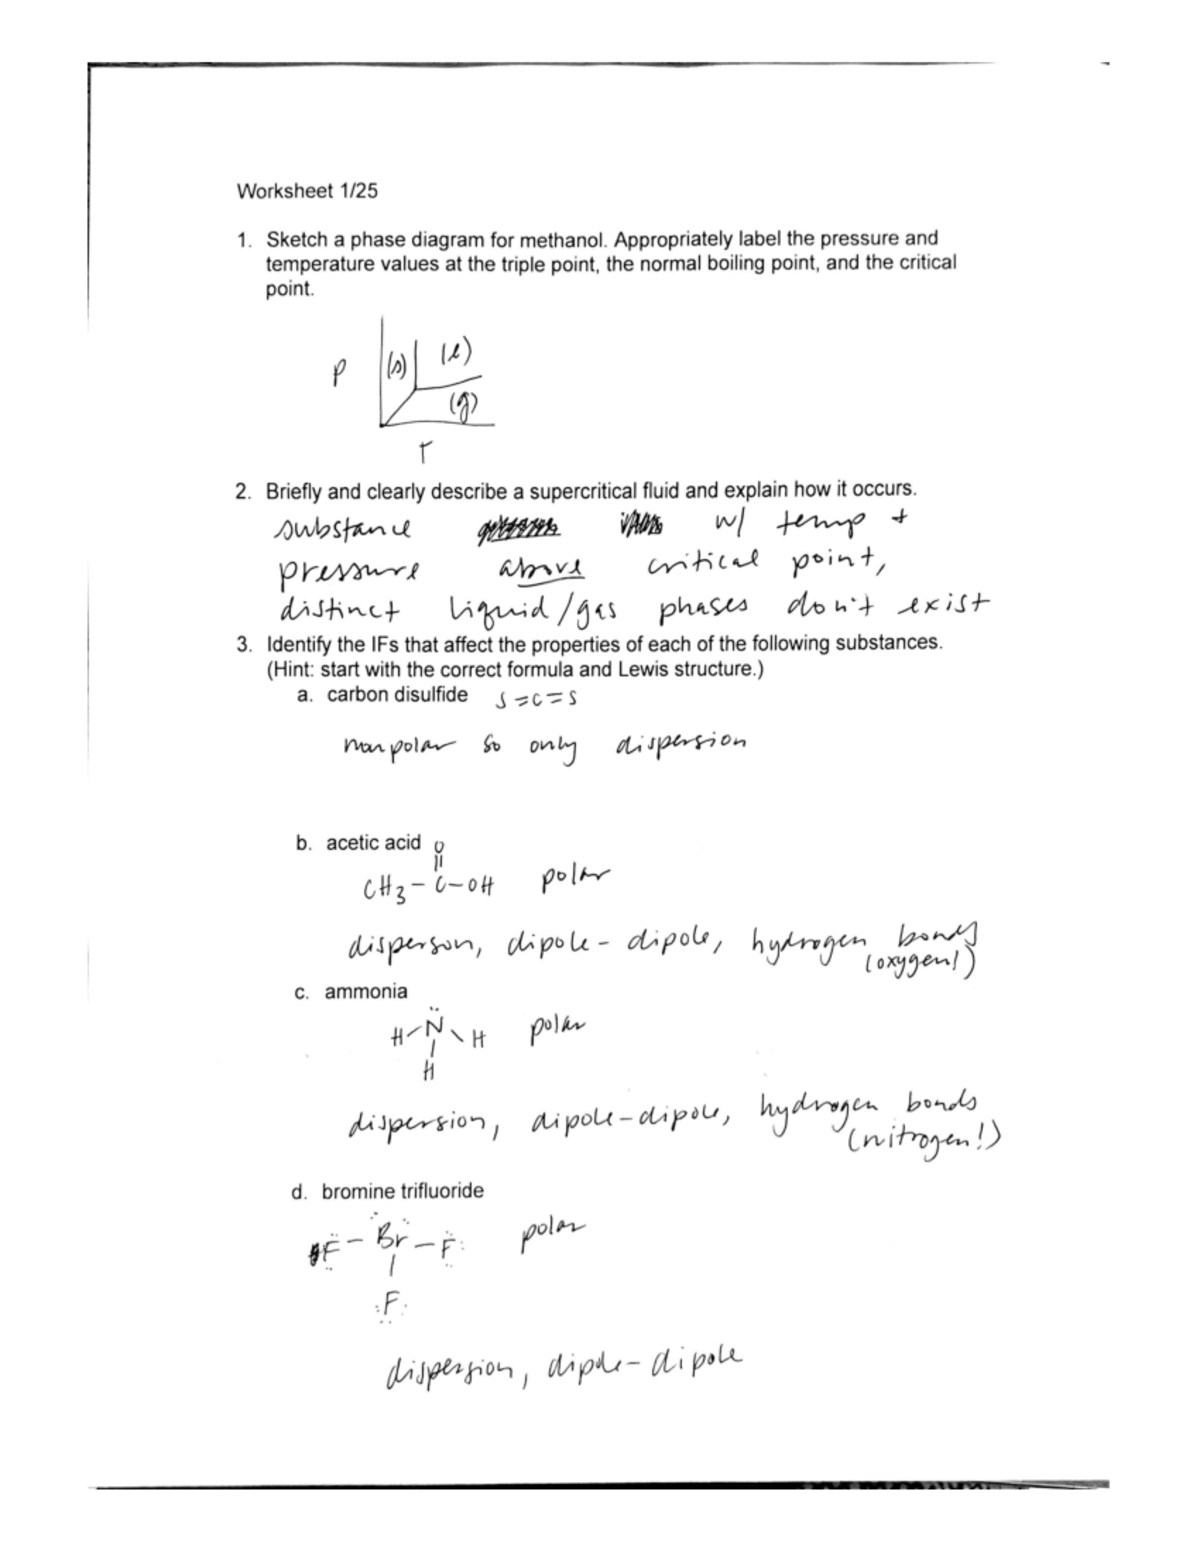 Worksheet 1/25
1. Sketch a phase diagram for methanol. Appropriately label the pressure and
temperature values at the triple point, the normal boiling point, and the critical
point.
P
(s)
(l)
(g)
T
2. Briefly and clearly describe a supercritical fluid and explain how it occurs.
substance w/ temp +
pressure above critical point,
distinct liquid/gas phases don't exist
3. Identify the IFs that affect the properties of each of the following substances.
(Hint: start with the correct formula and Lewis structure.)
a. carbon disulfide S=C=S
nonpolar so only dispersion
b. acetic acid O
||
CH3-C-OH polar
disperson, dipole-dipole, hydrogen bonds
(oxygen!)
c. ammonia
H-N-H polar
|
H
dispersion, dipole-dipole, hydrogen bonds
(nitrogen!)
d. bromine trifluoride
F-Br-F polar
|
F
dispersion, dipole-dipole